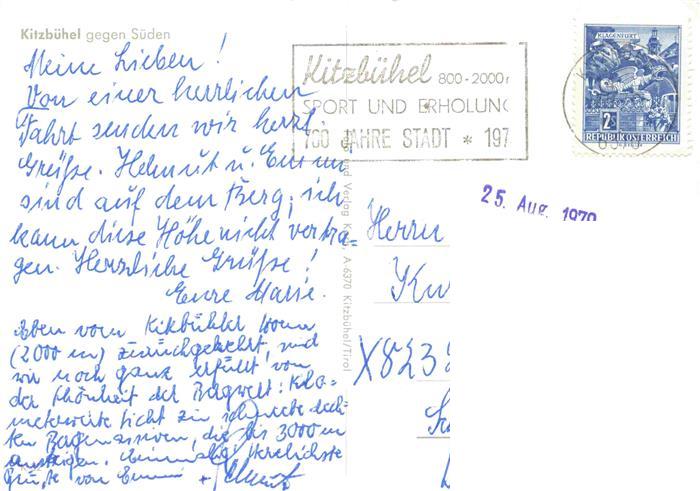 Kitzbühel gegen Süden
Meine Lieben!
Von einer herrlichen
Fahrt senden wir herzl.
Grüße. Helmut u. Emmi
sind auf dem Berg, ich
kann diese Höhe nicht vertra-
gen. Herzliche Grüße!
Eure Marie.
Eben vom Kitzbühler Horn
(2000 m) zurückgekehrt, sind
wir noch ganz erfüllt von
der Schönheit der Bergwelt: Kilo-
meterweite Sicht zu
ten Bergmassiven, die bis 3000 m
ansteigen. herzlichste
Grüße von Emmi + Helmut
Kitzbühel 800-2000
SPORT UND ERHOLUNG
700 JAHRE STADT * 197
KLAGENFURT
2S
REPUBLIK ÖSTERREICH
25. Aug. 1970
und Verlag
A 6370 Kitzbühel/Tirol
Herrn
X823